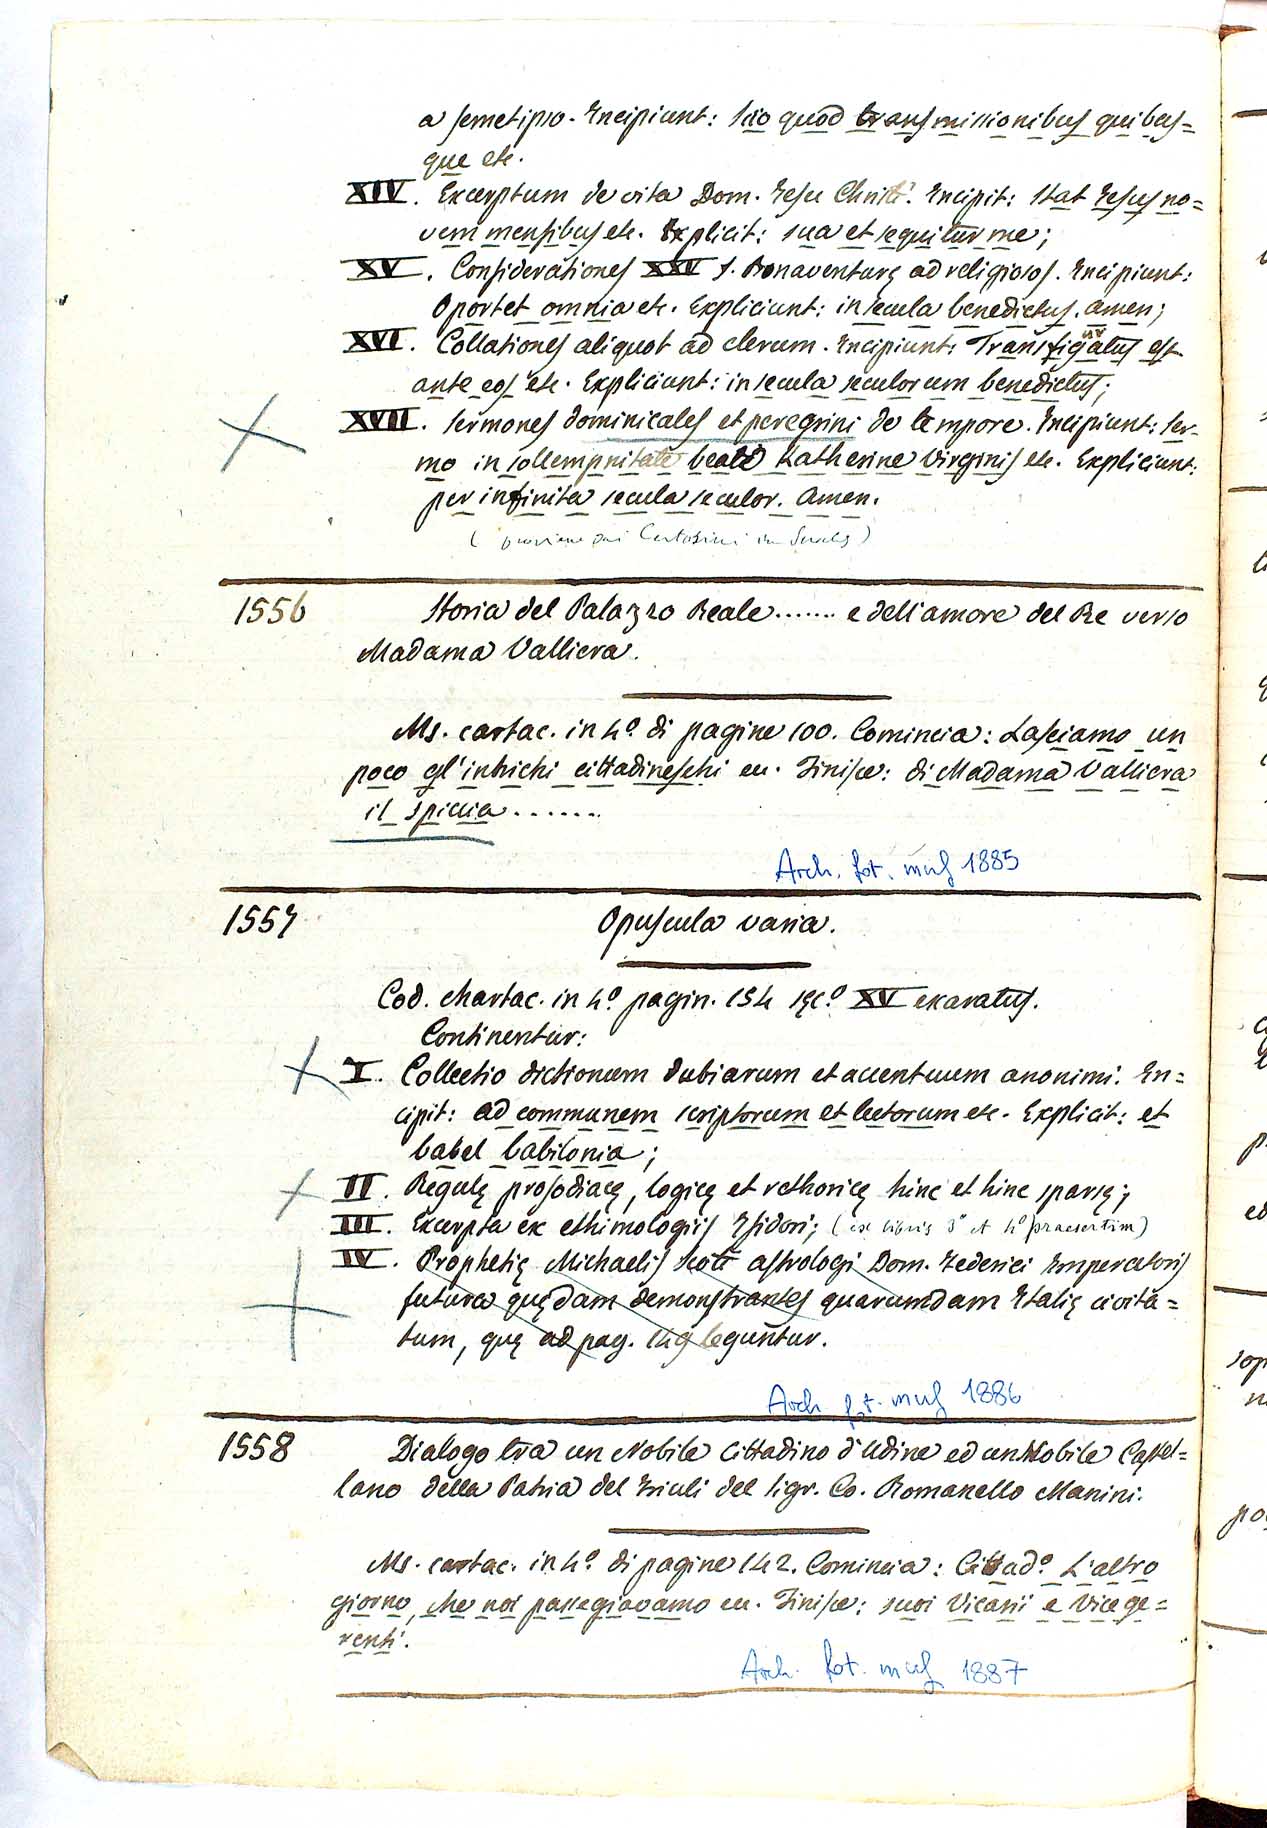 a semetipso. Incipiunt: Scio quod transmissionibus quibus=
que etc.
XIV. Excerptum de vita Dom. Jesu Christi. Incipit: Stat Jesus no=
vem mensibus etc. Explicit: sua et sequitur me;
XV. Considerationes XXV S. Bonaventurę ad religiosos. Incipiunt:
Oportet omnia etc. Expliciunt: in secula benedictus. amen;
XVI. Collationes aliquot ad clerum. Incipiunt: Transfiguratus est
ante eos etc. Expliciunt: in secula seculorum benedictus;
XVII. Sermones dominicales et peregrini de tempore. Incipiunt: Ser-
mo in sollempnitate beate Katherine Virginis etc. Expliciunt:
per infinita secula seculor. Amen.
1556 Storia del Palazzo Reale....... e dell'amore del Re verso
Madama Valliera.
Ms. cartac. in 4º di pagine 100. Comincia: Lasciamo un
poco gl'intrichi cittadineschi ec. Finisce: di Madama Valliera
il spiccia......
Arch. fot. mus 1885
1557 Opuscula varia.
Cod. chartac. in 4º pagin. 154 sęc.º XV exaratus.
Continentur:
I. Collectio dictionum dubiarum et accentuum anonimi. In=
cipit: ad communem scriptorum et lectorum etc. Explicit: et
babel babilonia;
II. Regulę prosodiacę, logicę et rethoricę hinc et hinc sparsę;
III. Excerpta ex ethimologiis Isidori; (ex libris 3º et 4º praesertim)
IV. Prophetię Michaelis Scoti astrologi Dom. Federici Imperatoris
futura quędam demonstrantes quarumdam Italię civita=
tum, quę ad pag. 149 leguntur.
Arch. fot. mus 1886
1558 Dialogo tra un Nobile Cittadino d'Udine ed un Nobile Castel=
lano della Patria del Friuli del Sigr. Co. Romanello Manini.
Ms. cartac. in 4º di pagine 142. Comincia: Cittad.º L'altro
giorno, che noi passegiavamo ec. Finisce: suoi Vicarii e Vicege=
renti.
Arch. fot. mus 1887